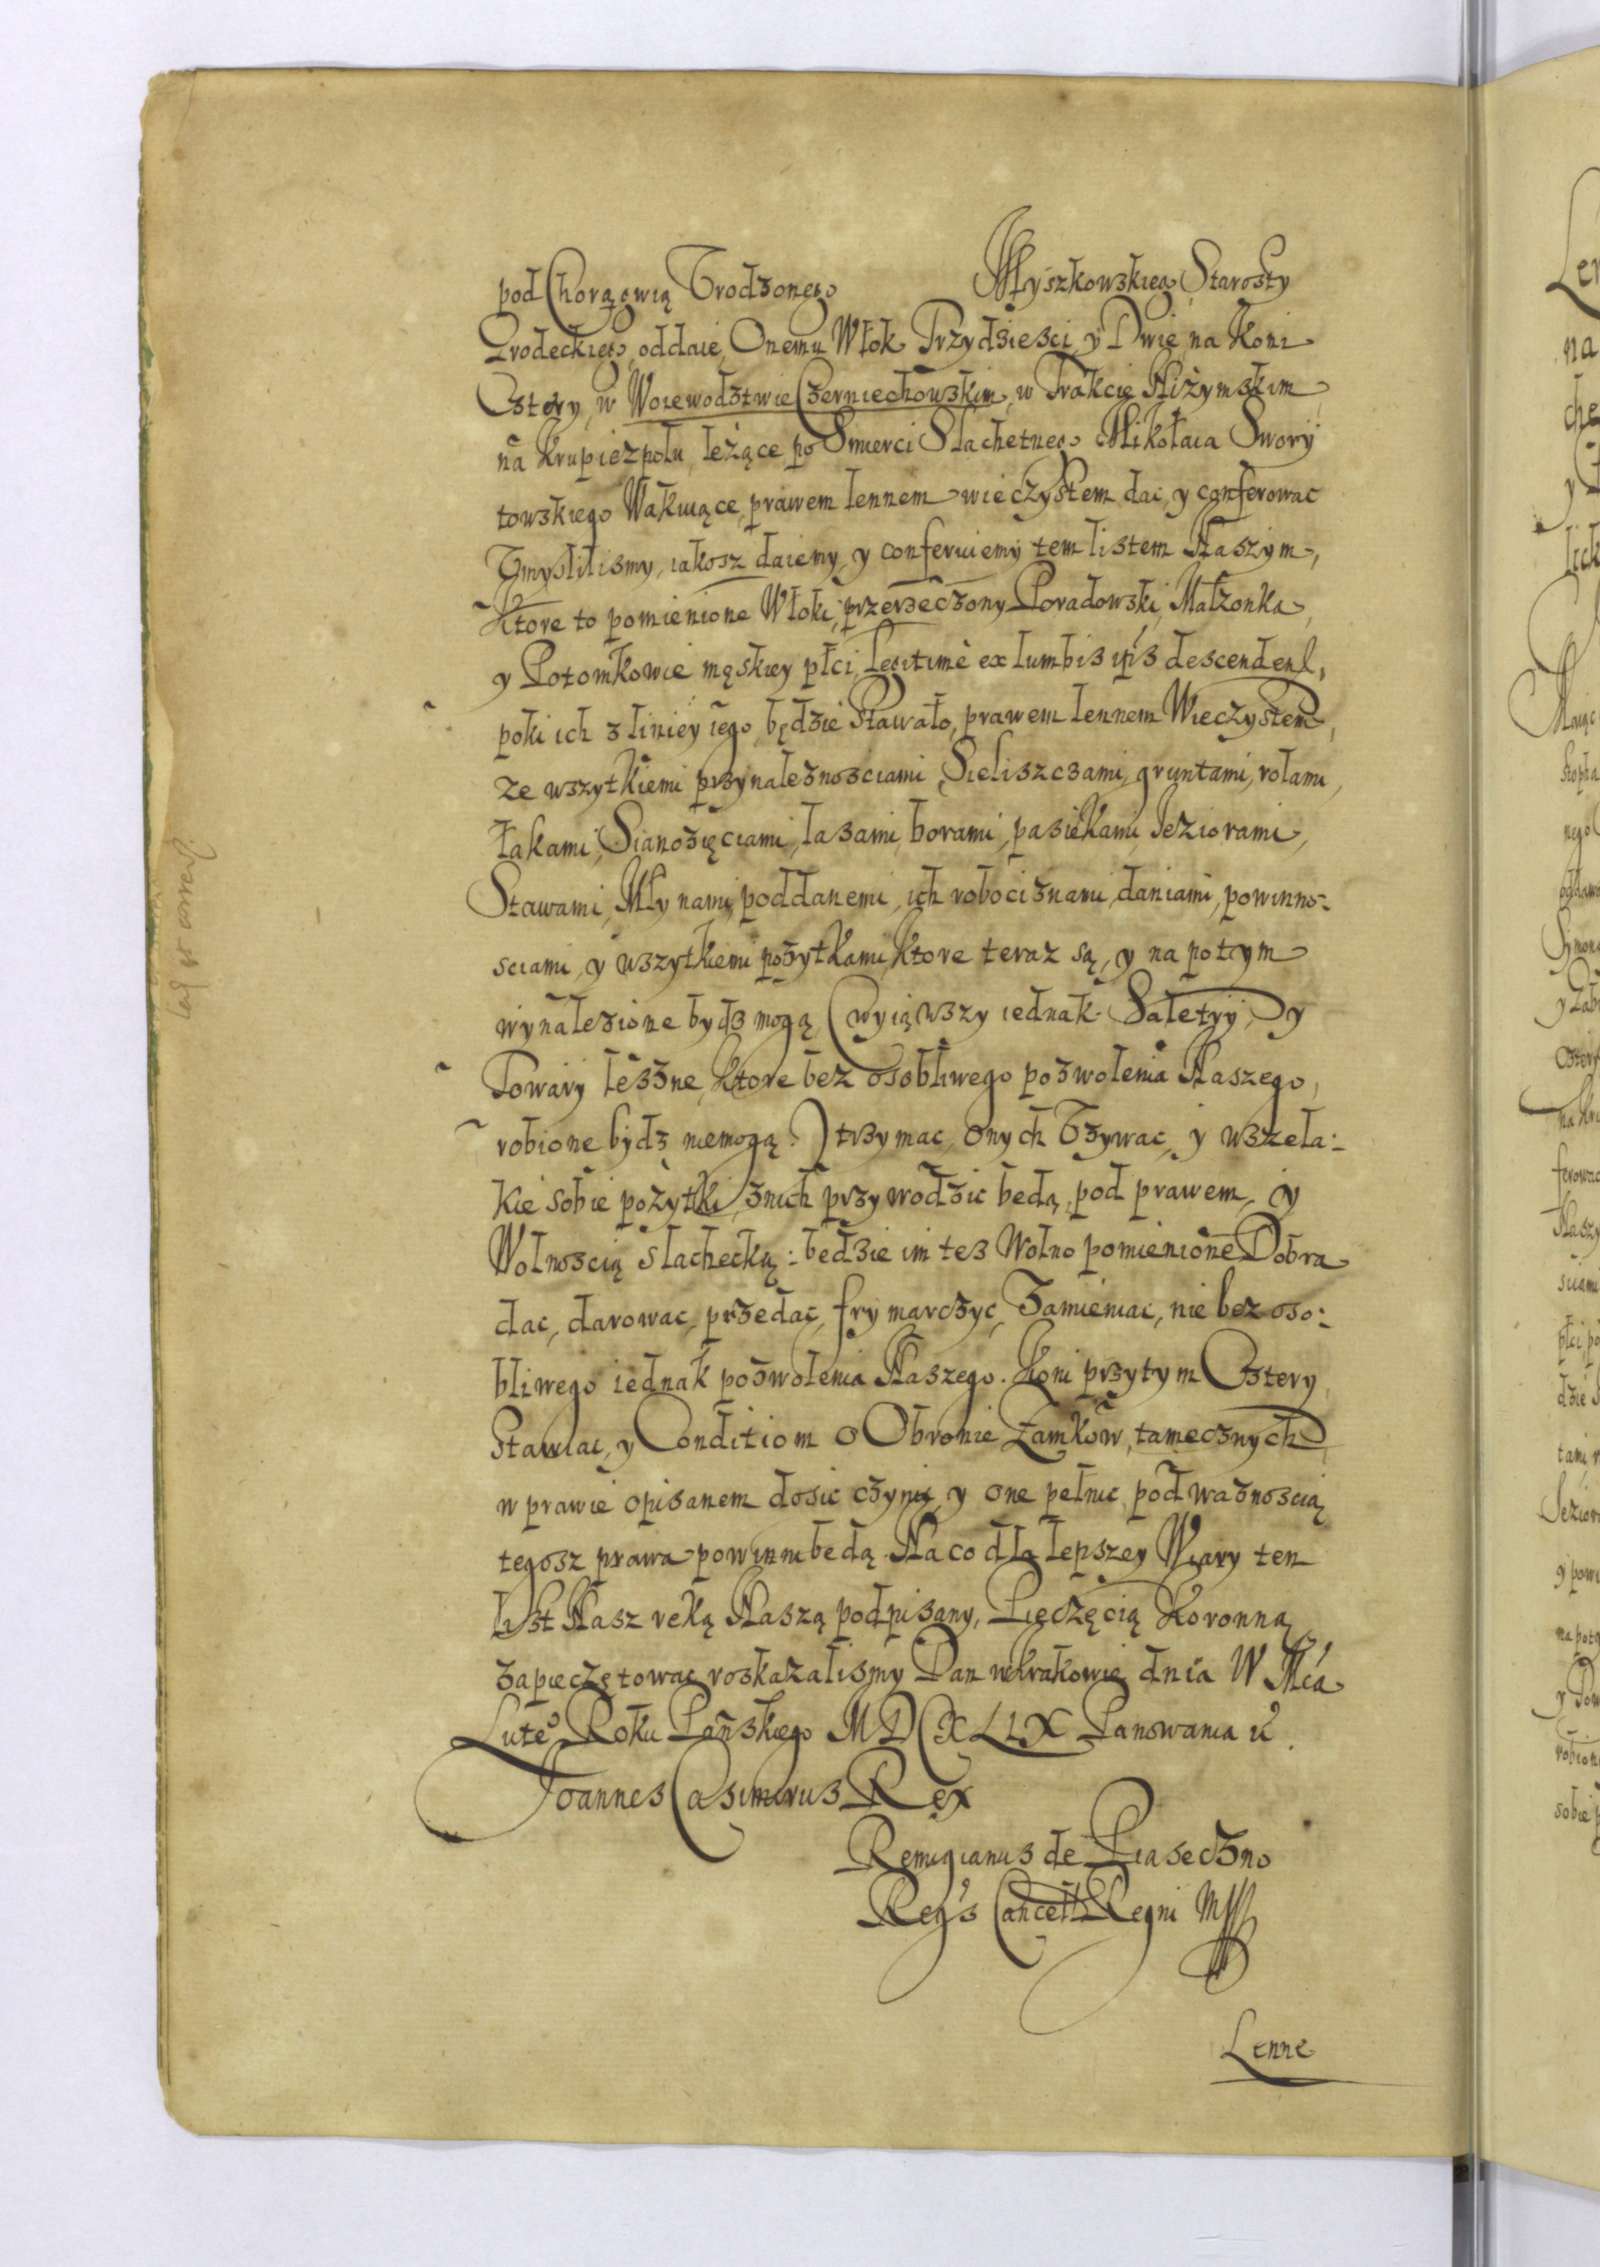 pod Chorągwią Vrodzonego Myszkowskiego Starosty
Grodeckiego, oddaie, Onemu Włok Trzydziesci y Dwie na Koni
Cztery, w Woiewodztwie Czerniechowskim, w Trakcie Niżymskim
na Krupiczpolu leżące po Smierci Slachetnego Mikołaia Swory
towskiego Wakuiące, prawem lennem wieczystem dac, y conferowac
Vmyslilismy, iakosz daiemy, y conferuiemy tem listem Naszym,
Ktore to pomienione Włoki, przerzeczony Poradowski, Małzonka,
y Potomkowie męskiey płci, legitimè ex lumbis ips descendent,
poki ich z liniey iego będzie Stawało, prawem lennem Wieczystem,
ze wszytkiemi przynaleznosciami, Sieliszczami, gruntami, rolami,
łakami, Sianozięciami, lasami, borami, pasiekami, Ieziorami,
Stawami, Młynami, poddanemi, ich robociznami, daniami, powinno:
sciami, y wszytkiemi pozytkami, ktore teraz są, y na potym
wynalezione bydz mogą (wyiąwszy iednak Saletry, y
Towary leszne, Ktore bez osobliwego pozwolenia Naszego,
robione bydz niemogą.) trzymac, onych Vzywac, y wszela:
kie sobie pożytki, znich przywodzic będą, pod prawem, y
Wolnoscią slachecką: będzie im tez Wolno pomienione Dobra
dac, darowac, przedac, frymarczyc, Zamieniac, nie bez oso:
bliwego iednak pozwolenia Naszego. Koni przytym Cztery
Stawiac, y Conditiom o Obronie Zamkow, tamecznych
w prawie opisanem dosic czynic, y one pełnic, pod waznoscią
tegosz prawa powinni będą. Na co dla lepszey Wiary ten
list Nasz ręką Naszą podpisany, Pieczęcią Koronną
zapieczętowac roskazalismy Dan w Krakowie dnia W Mca
Lute° Roku Pańskiego MDCXLIX Panowania ů.
Joannes Casimirus Rex
Remigianus de Piaseczno
Regs Cancell Regni mp
Lenne